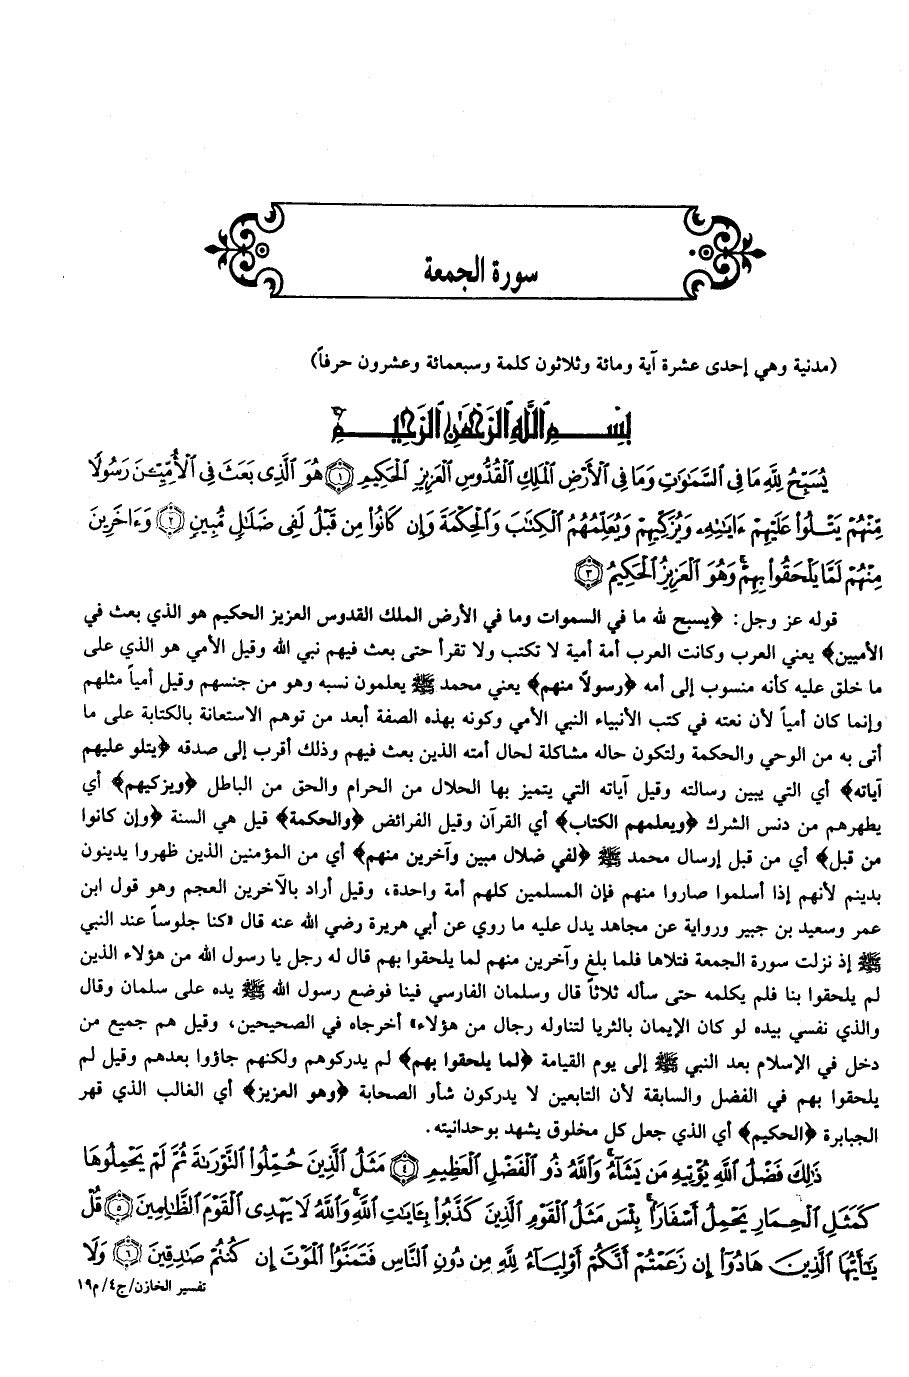 سورة الجمعة
(مدنية وهي إحدى عشرة آية ومائة وثلاثون كلمة وسبعمائة وعشرون حرفاً)
بِسْمِ اللَّهِ الرَّحْمَٰنِ الرَّحِيمِ
يُسَبِّحُ لِلَّهِ مَا فِي السَّمَٰوَٰتِ وَمَا فِي الْأَرْضِ الْمَلِكِ الْقُدُّوسِ الْعَزِيزِ الْحَكِيمِ ﴿١﴾ هُوَ الَّذِي بَعَثَ فِي الْأُمِّيِّـۧنَ رَسُولًا
مِّنْهُمْ يَتْلُوا۟ عَلَيْهِمْ ءَايَٰتِهِۦ وَيُزَكِّيهِمْ وَيُعَلِّمُهُمُ الْكِتَٰبَ وَالْحِكْمَةَ وَإِن كَانُوا۟ مِن قَبْلُ لَفِي ضَلَٰلٍ مُّبِينٍ ﴿٢﴾ وَءَاخَرِينَ
مِنْهُمْ لَمَّا يَلْحَقُوا۟ بِهِمْ ۚ وَهُوَ الْعَزِيزُ الْحَكِيمُ ﴿٣﴾
قوله عز وجل: ﴿يسبح لله ما في السموات وما في الأرض الملك القدوس العزيز الحكيم هو الذي بعث في
الأميين﴾ يعني العرب وكانت العرب أمة أمية لا تكتب ولا تقرأ حتى بعث فيهم نبي الله وقيل الأمي هو الذي على
ما خلق عليه كأنه منسوب إلى أمه ﴿رسولاً منهم﴾ يعني محمد ﷺ يعلمون نسبه وهو من جنسهم وقيل أمياً مثلهم
وإنما كان أمياً لأن نعته في كتب الأنبياء النبي الأمي وكونه بهذه الصفة أبعد من توهم الاستعانة بالكتابة على ما
أتى به من الوحي والحكمة ولتكون حاله مشاكلة لحال أمته الذين بعث فيهم وذلك أقرب إلى صدقه ﴿يتلو عليهم
آياته﴾ أي التي يبين رسالته وقيل آياته التي يتميز بها الحلال من الحرام والحق من الباطل ﴿ويزكيهم﴾ أي
يطهرهم من دنس الشرك ﴿ويعلمهم الكتاب﴾ أي القرآن وقيل الفرائض ﴿والحكمة﴾ قيل هي السنة ﴿وإن كانوا
من قبل﴾ أي من قبل إرسال محمد ﷺ ﴿لفي ضلال مبين وآخرين منهم﴾ أي من المؤمنين الذين ظهروا يدينون
بدينم لأنهم إذا أسلموا صاروا منهم فإن المسلمين كلهم أمة واحدة، وقيل أراد بالآخرين العجم وهو قول ابن
عمر وسعيد بن جبير ورواية عن مجاهد يدل عليه ما روي عن أبي هريرة رضي الله عنه قال «كنا جلوساً عند النبي
ﷺ إذ نزلت سورة الجمعة فتلاها فلما بلغ وآخرين منهم لما يلحقوا بهم قال له رجل يا رسول الله من هؤلاء الذين
لم يلحقوا بنا فلم يكلمه حتى سأله ثلاثاً قال وسلمان الفارسي فينا فوضع رسول الله ﷺ يده على سلمان وقال
والذي نفسي بيده لو كان الإيمان بالثريا لتناوله رجال من هؤلاء» أخرجاه في الصحيحين، وقيل هم جميع من
دخل في الإسلام بعد النبي ﷺ إلى يوم القيامة ﴿لما يلحقوا بهم﴾ لم يدركوهم ولكنهم جاؤوا بعدهم وقيل لم
يلحقوا بهم في الفضل والسابقة لأن التابعين لا يدركون شأو الصحابة ﴿وهو العزيز﴾ أي الغالب الذي قهر
الجبابرة ﴿الحكيم﴾ أي الذي جعل كل مخلوق يشهد بوحدانيته.
ذَٰلِكَ فَضْلُ اللَّهِ يُؤْتِيهِ مَن يَشَآءُ ۚ وَاللَّهُ ذُو الْفَضْلِ الْعَظِيمِ ﴿٤﴾ مَثَلُ الَّذِينَ حُمِّلُوا۟ التَّوْرَىٰةَ ثُمَّ لَمْ يَحْمِلُوهَا
كَمَثَلِ الْحِمَارِ يَحْمِلُ أَسْفَارًۢا ۚ بِئْسَ مَثَلُ الْقَوْمِ الَّذِينَ كَذَّبُوا۟ بِـَٔايَٰتِ اللَّهِ ۚ وَاللَّهُ لَا يَهْدِي الْقَوْمَ الظَّٰلِمِينَ ﴿٥﴾ قُلْ
يَٰٓأَيُّهَا الَّذِينَ هَادُوٓا۟ إِن زَعَمْتُمْ أَنَّكُمْ أَوْلِيَآءُ لِلَّهِ مِن دُونِ النَّاسِ فَتَمَنَّوُا۟ الْمَوْتَ إِن كُنتُمْ صَٰدِقِينَ ﴿٦﴾ وَلَا
تفسير الخازن/ج٤/م١٩